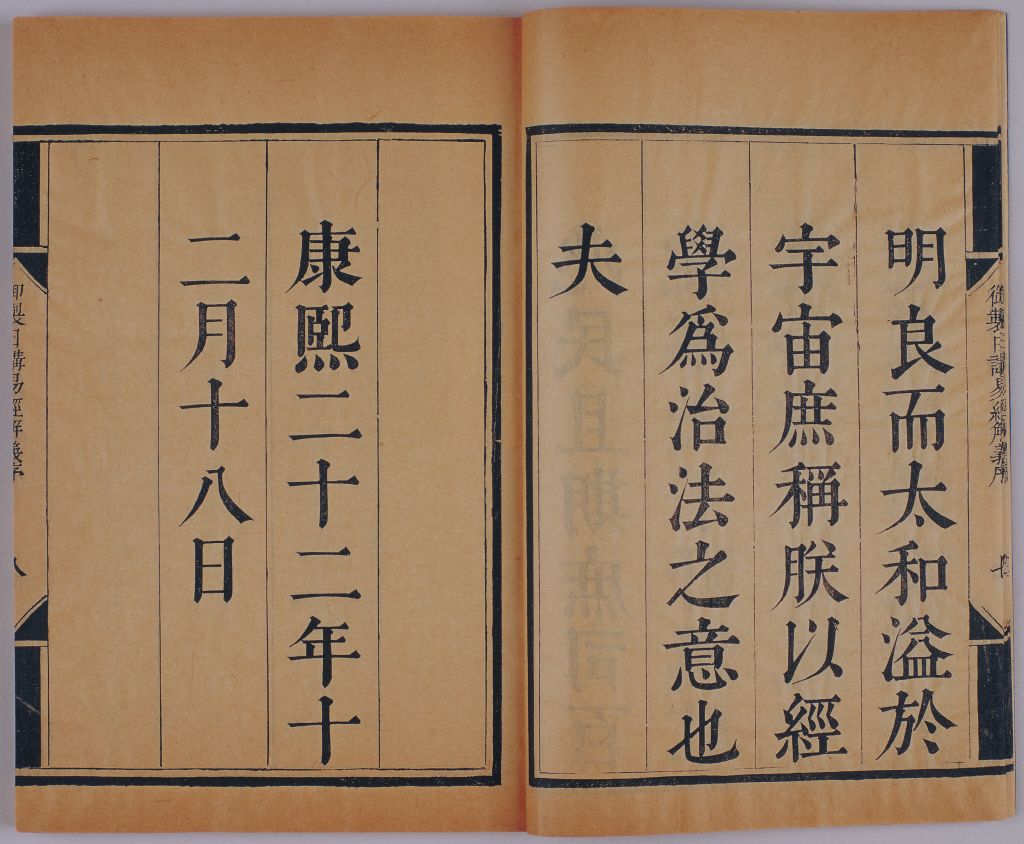 明良而太和溢於
宇宙庶稱朕以經
學爲治法之意也
夫
康熙二十二年十
二月十八日
御製日講易經解義序
七
御製日講易經解義序
八